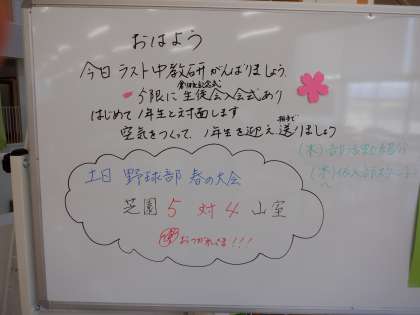 おはよう
今日ラスト中教研がんばりましょう
5限に生徒会入会式あり
はじめて1年生と対面します
空気をつくって、1年生を迎え送りましょう
拍手で
(木)部活動紹介
土日 野球部 春の大会
芝園 5 対 4 山室
おつかれさま!!!